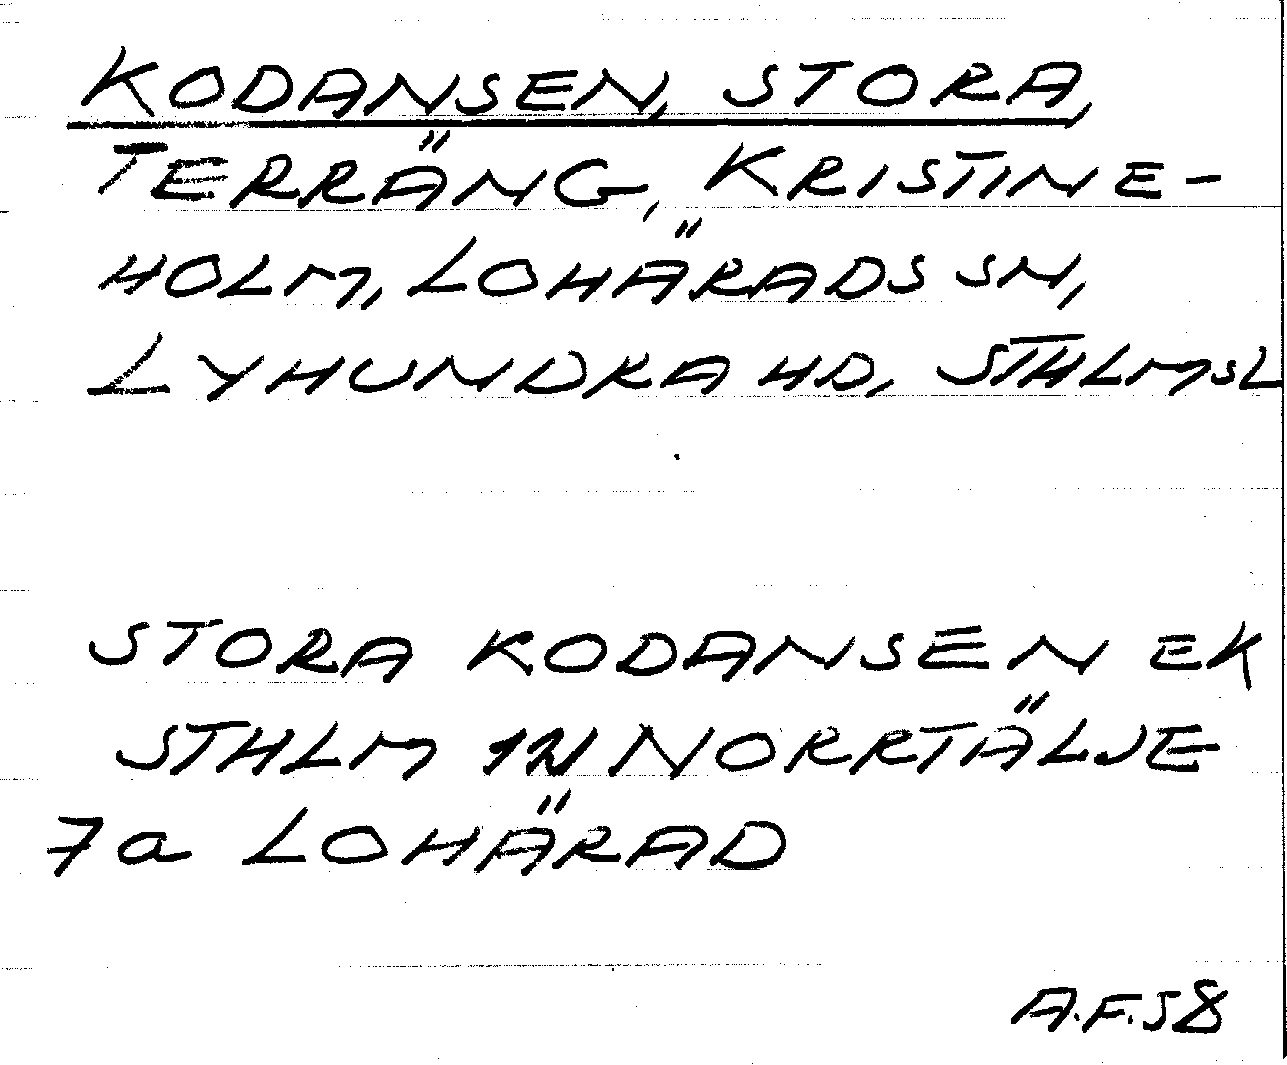 KODANSEN, STORA,
TERRÄNG, KRISTINE-
HOLM, LOHÄRADS SN,
LYHUNDRA HD, STHLMSL
STORA KODANSEN EK
STHLM 1N NORRTÄLJE
7a LOHÄRAD
A.F. 58